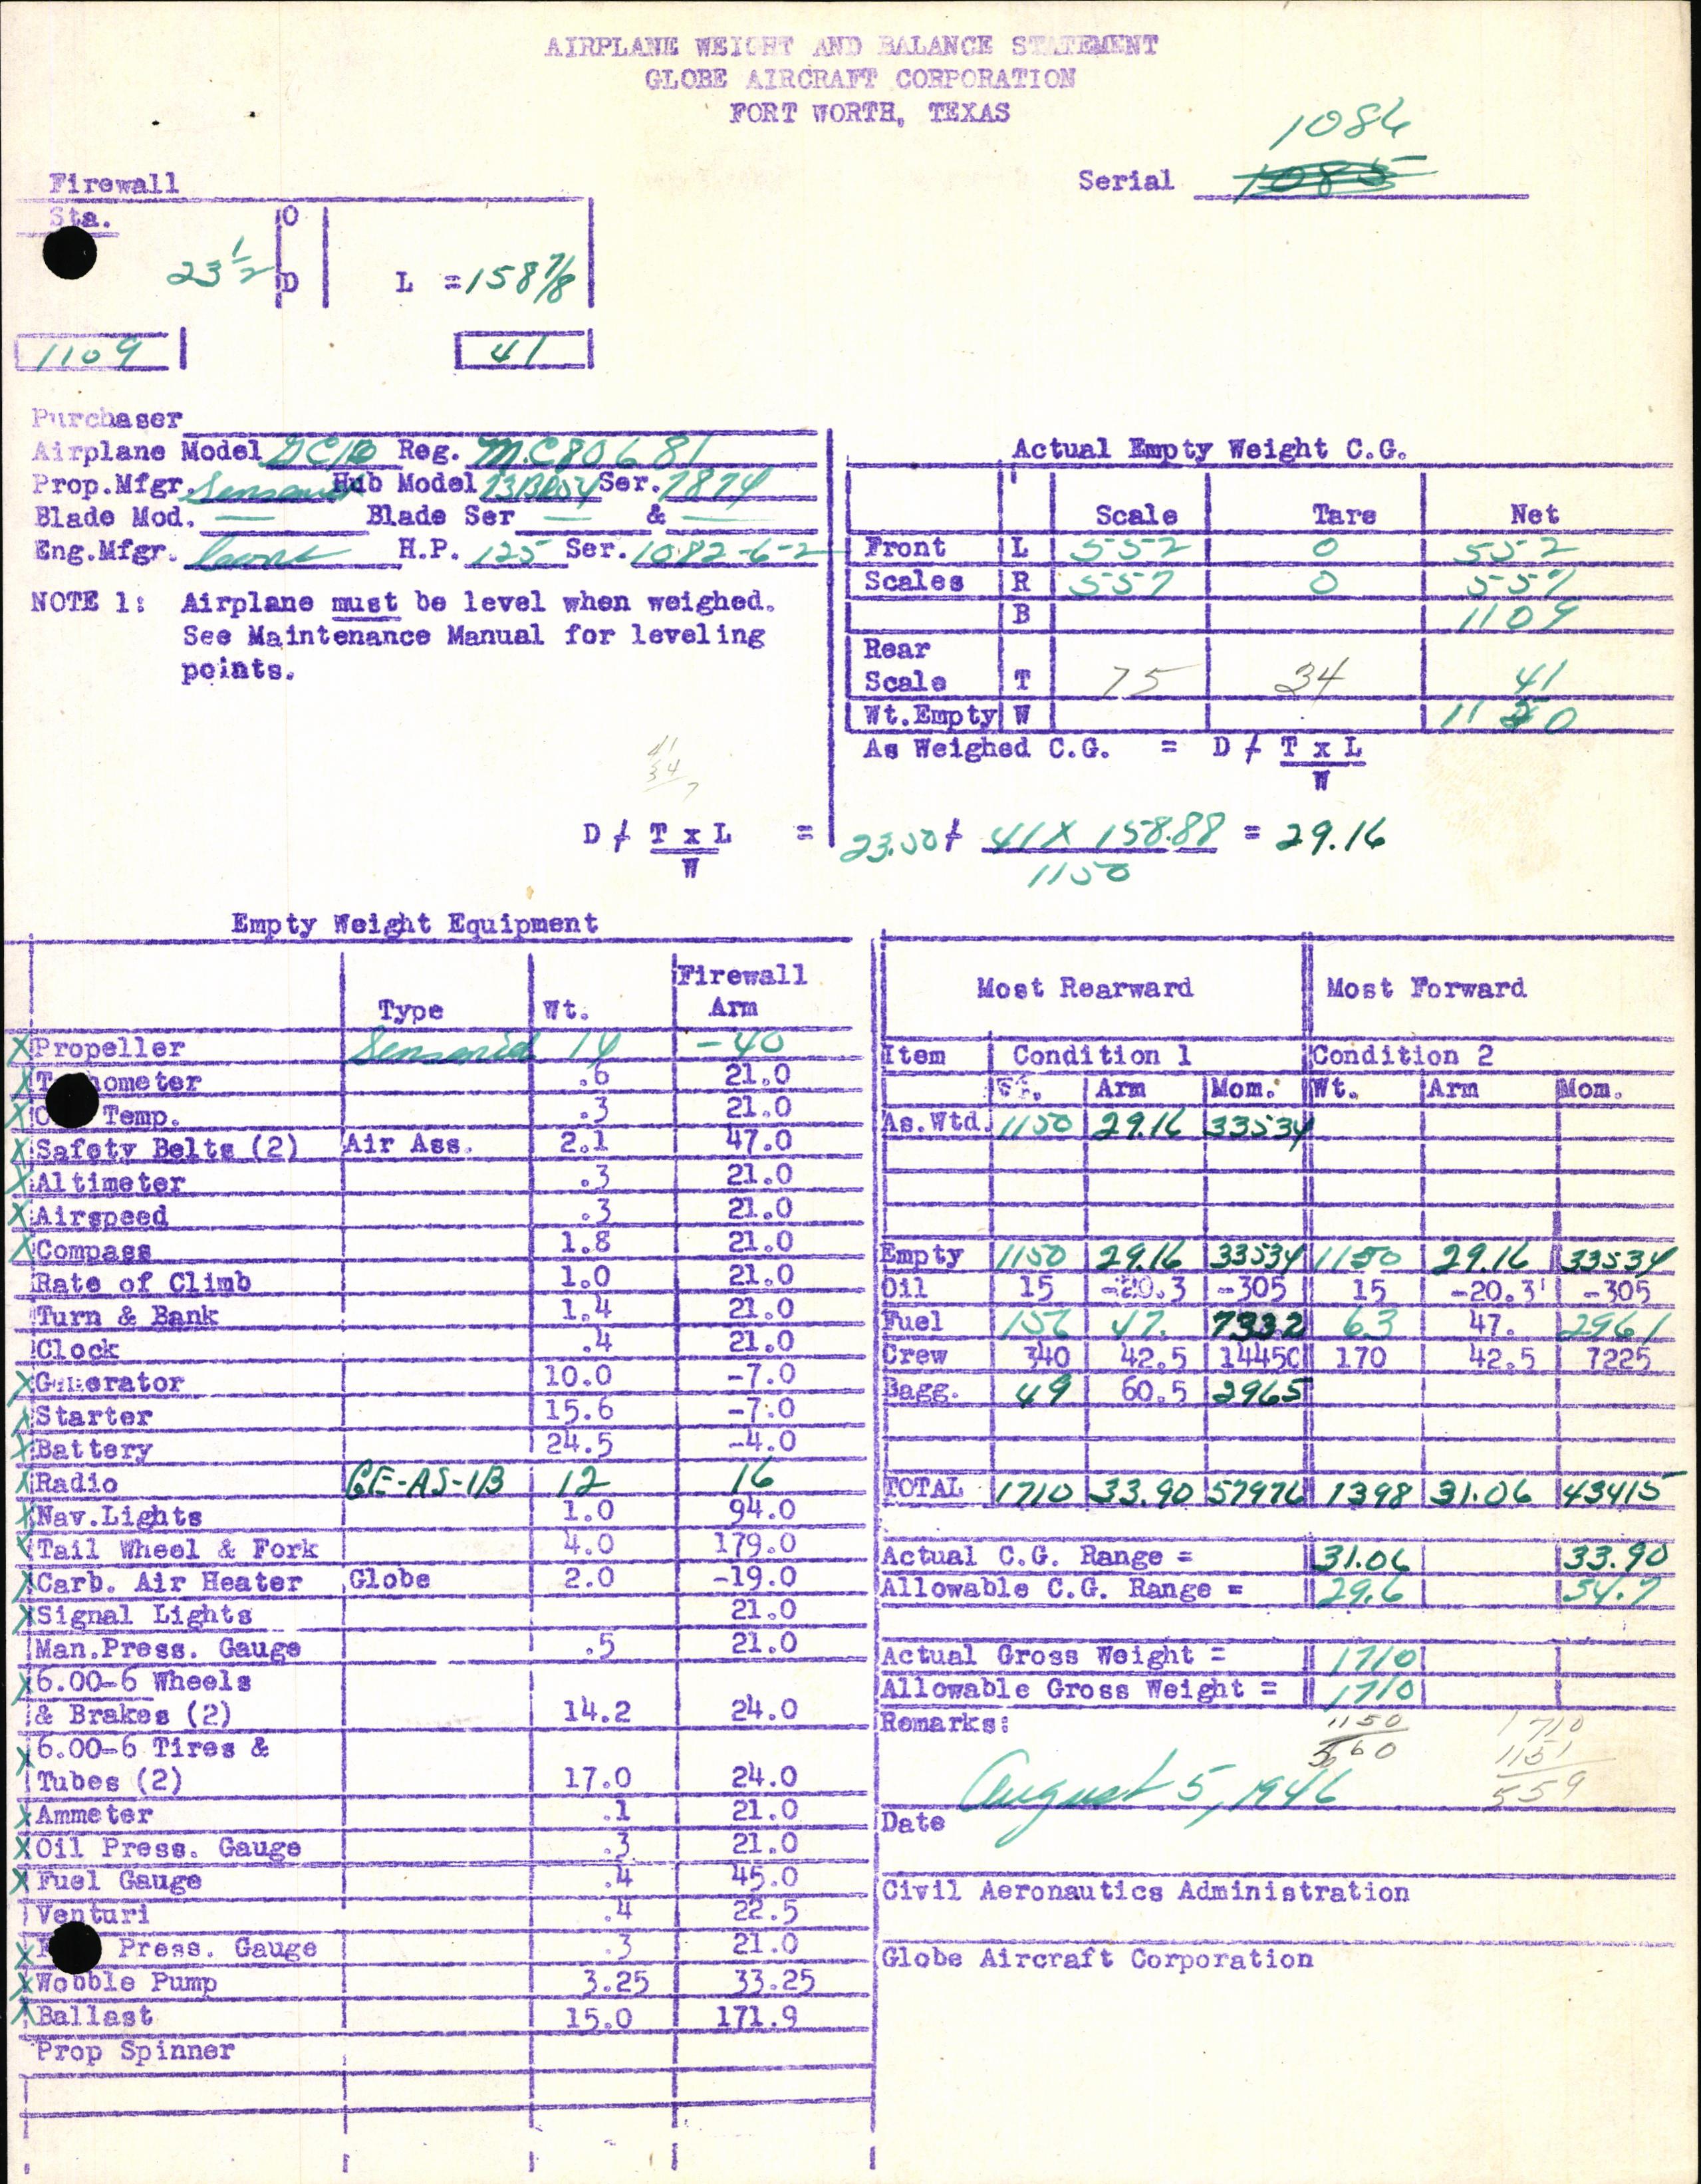 AIRPLANE WEIGHT AND BALANCE STATEMENT
GLOBE AIRCRAFT CORPORATION
FORT WORTH, TEXAS
1086
Serial 1085
Firewall
Sta.
O
23 1/2 D L = 158 7/8
1109 41
Purchaser
Airplane Model GC1B Reg. NC80681
Prop.Mfgr. Sensenich Hub Model Ser. 7874
Blade Mod. — Blade Ser — & —
Eng.Mfgr. H.P. 125 Ser. 1082-6-2
NOTE 1: Airplane must be level when weighed.
See Maintenance Manual for leveling
points.
Actual Empty Weight C.G.
Scale Tare Net
Front L 552 0 552
Scales R 557 0 557
B 1109
Rear
Scale T 75 34 41
Wt.Empty W 1150
As Weighed C.G. = D + T x L
W
41
34
7
D + T x L = 23.50 + 41 X 158.88 = 29.16
W 1150
Empty Weight Equipment
Type Wt. Firewall Arm
X Propeller Sensenich 14 -40
X T ometer .6 21.0
X O Temp. .3 21.0
X Safety Belts (2) Air Ass. 2.1 47.0
X Altimeter .3 21.0
X Airspeed .3 21.0
X Compass 1.8 21.0
Rate of Climb 1.0 21.0
Turn & Bank 1.4 21.0
Clock .4 21.0
X Generator 10.0 -7.0
X Starter 15.6 -7.0
X Battery 24.5 -4.0
X Radio GE-AS-1B 12 16
X Nav.Lights 1.0 94.0
X Tail Wheel & Fork 4.0 179.0
X Carb. Air Heater Globe 2.0 -19.0
X Signal Lights 21.0
Man.Press. Gauge .5 21.0
X 6.00-6 Wheels
& Brakes (2) 14.2 24.0
X 6.00-6 Tires &
Tubes (2) 17.0 24.0
X Ammeter .1 21.0
X Oil Press. Gauge .3 21.0
X Fuel Gauge .4 45.0
Venturi .4 22.5
X F Press. Gauge .3 21.0
X Wobble Pump 3.25 33.25
X Ballast 15.0 171.9
Prop Spinner
Most Rearward Most Forward
Item Condition 1 Condition 2
Wt. Arm Mom. Wt. Arm Mom.
As.Wtd. 1150 29.16 33534
Empty 1150 29.16 33534 1150 29.16 33534
Oil 15 -20.3 -305 15 -20.3 -305
Fuel 156 47. 7332 63 47. 2961
Crew 340 42.5 14450 170 42.5 7225
Bagg. 49 60.5 2965
TOTAL 1710 33.90 57976 1398 31.06 43415
Actual C.G. Range = 31.06 33.90
Allowable C.G. Range = 29.6 34.7
Actual Gross Weight = 1710
Allowable Gross Weight = 1710
Remarks: 1150 1710
560 1151
559
August 5, 1946
Date
Civil Aeronautics Administration
Globe Aircraft Corporation